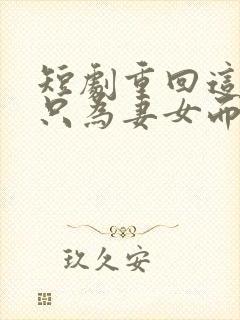 短劇重回這
只為妻女而
玖久安